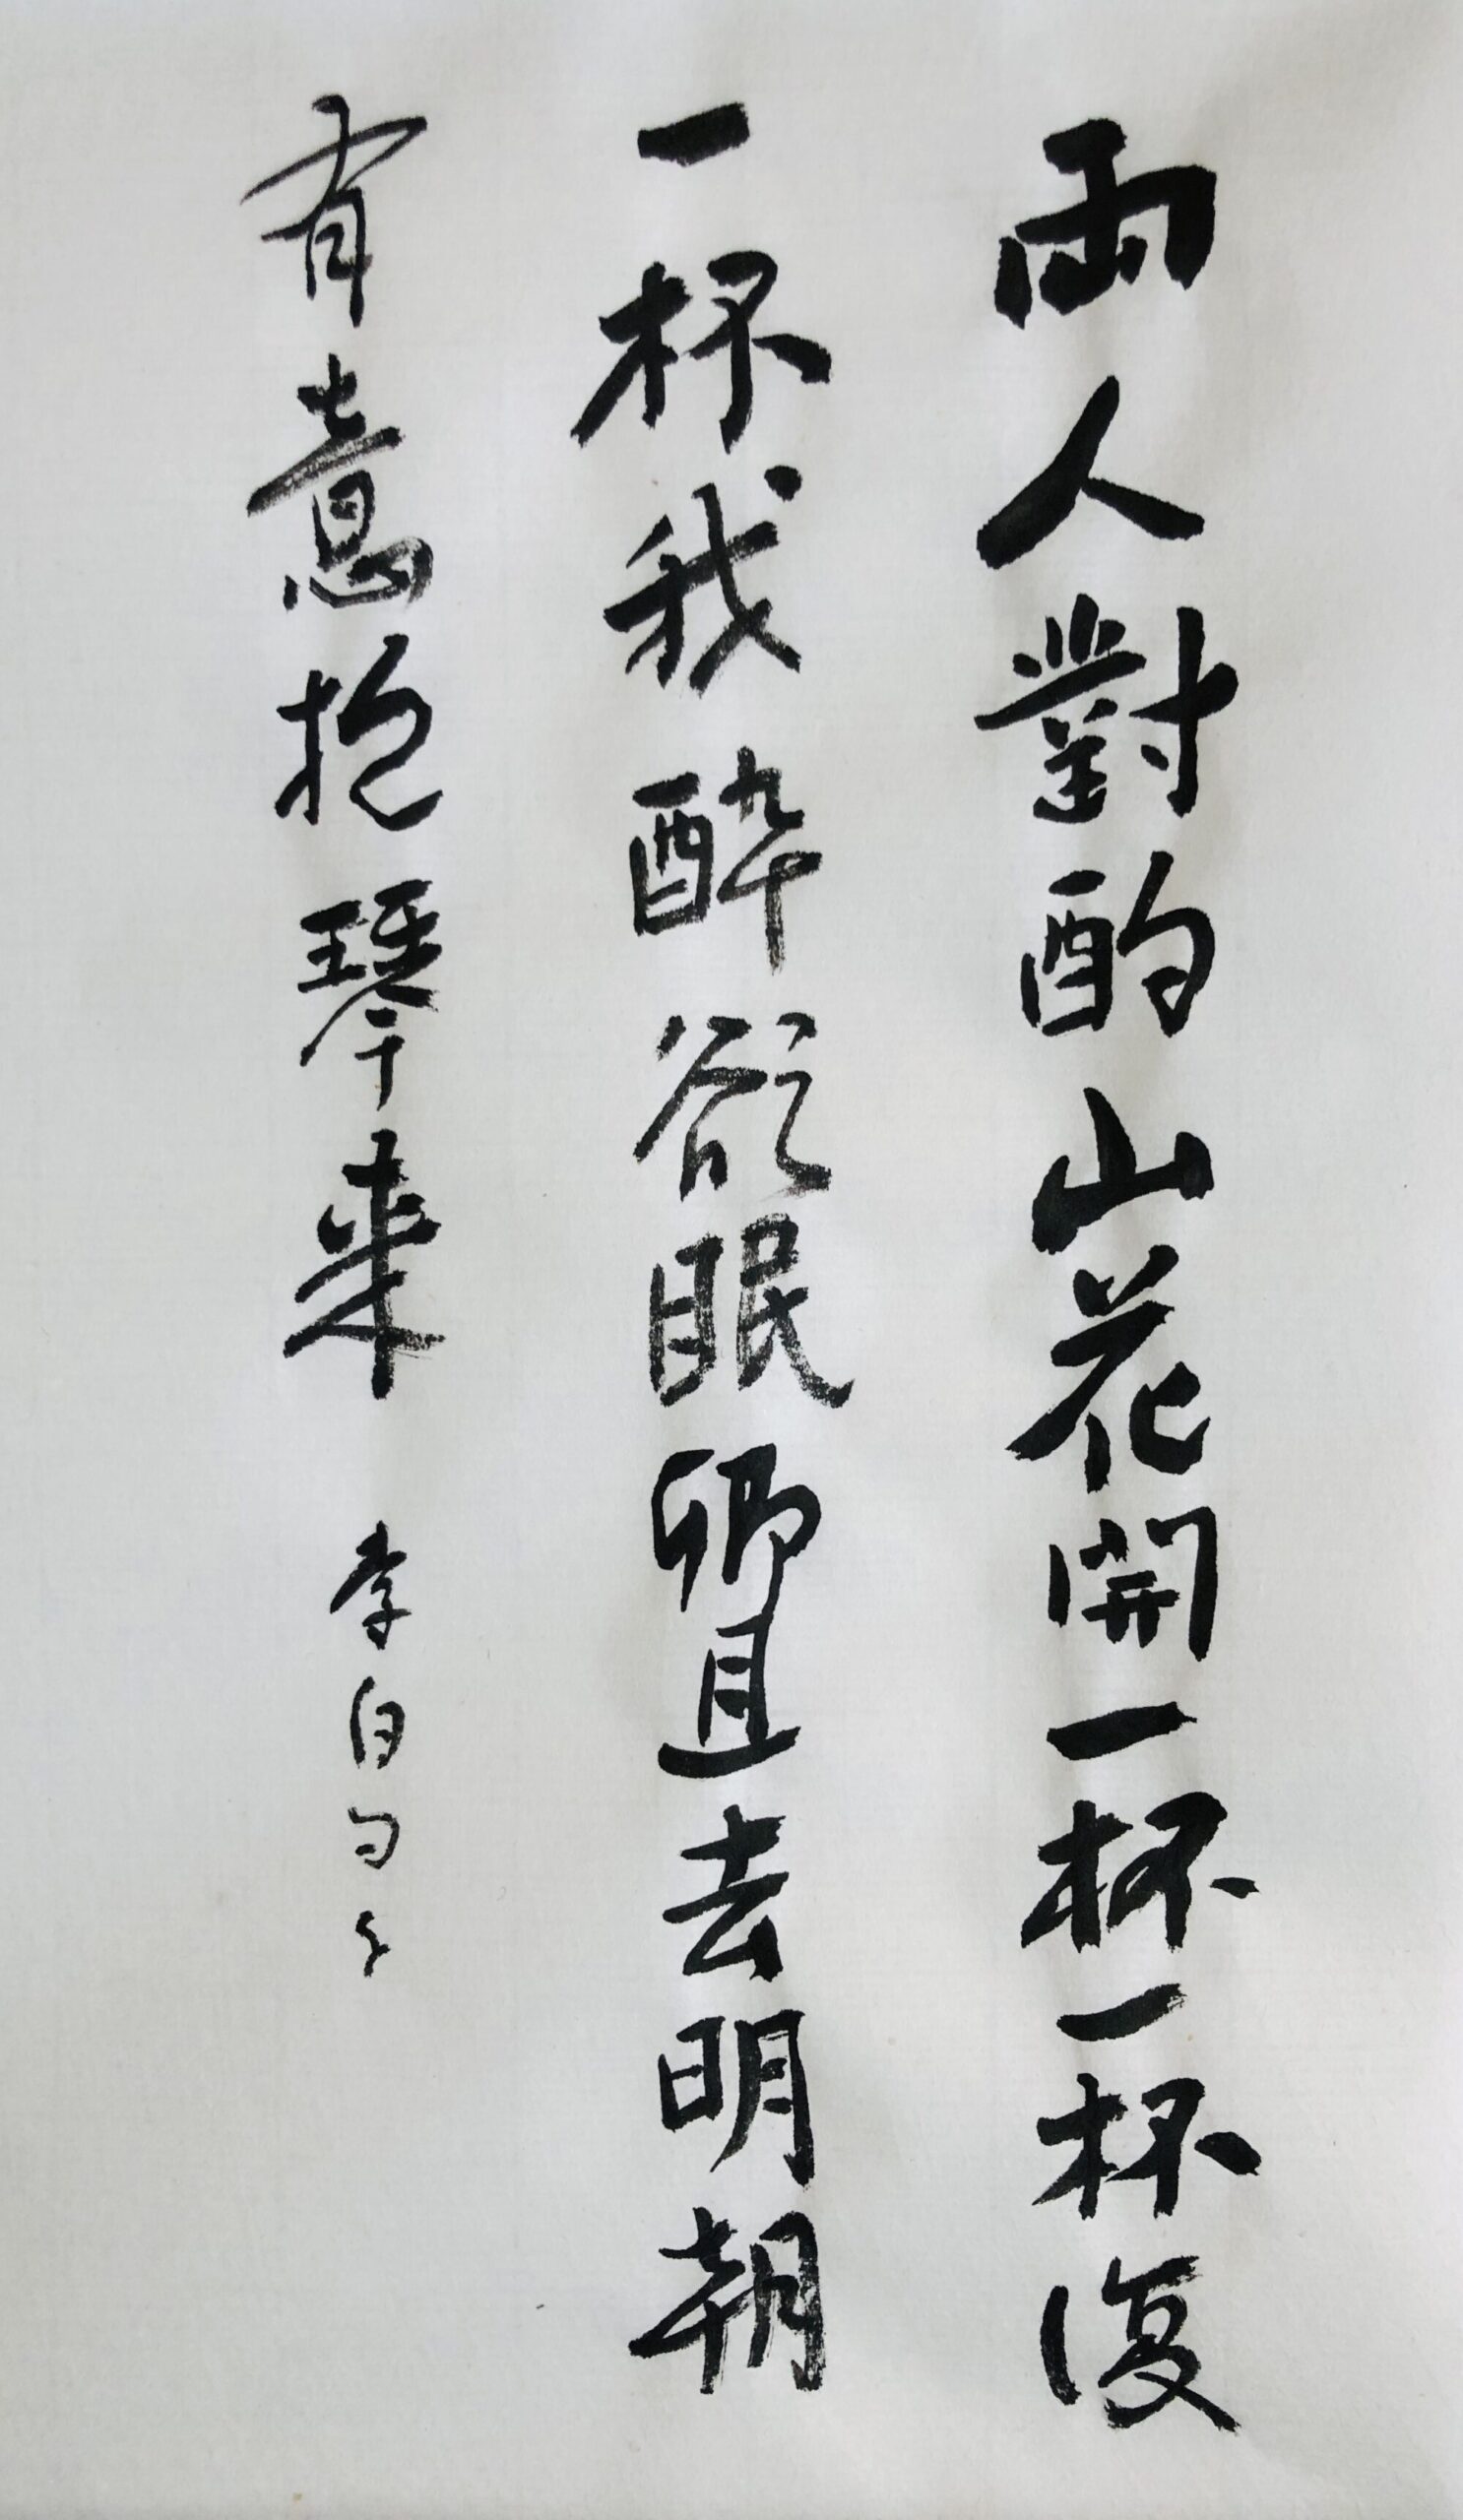 兩人對酌山花開一杯一杯復
一杯我醉欲眠卿且去明朝
有意抱琴来 李白句